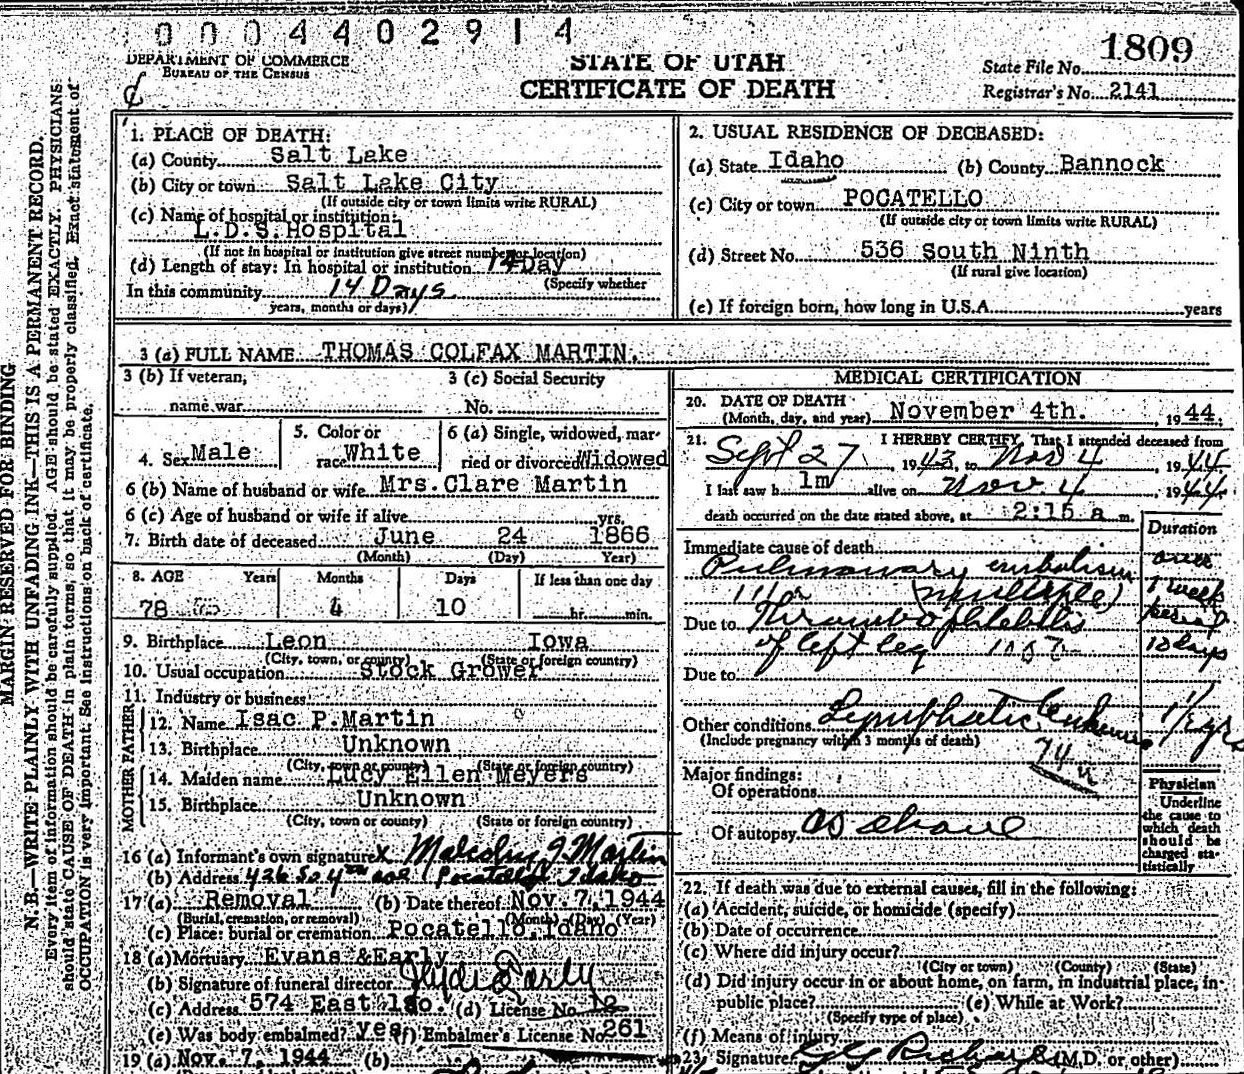 0004402914
DEPARTMENT OF COMMERCE
BUREAU OF THE CENSUS
STATE OF UTAH
CERTIFICATE OF DEATH
State File No. 1809
Registrar's No. 2141
MARGIN RESERVED FOR BINDING
N. B.—WRITE PLAINLY WITH UNFADING INK—THIS IS A PERMANENT RECORD.
Every item of information should be carefully supplied. AGE should be stated EXACTLY. PHYSICIANS
should state CAUSE OF DEATH in plain terms, so that it may be properly classified. Exact statement of
OCCUPATION is very important. See instructions on back of certificate.
1. PLACE OF DEATH:
(a) County Salt Lake
(b) City or town Salt Lake City
(If outside city or town limits write RURAL)
(c) Name of hospital or institution:
L.D.S.Hospital
(If not in hospital or institution give street number or location)
(d) Length of stay: In hospital or institution 14 Day
(Specify whether
In this community 14 Days
years, months or days)
2. USUAL RESIDENCE OF DECEASED:
(a) State Idaho (b) County Bannock
(c) City or town POCATELLO
(If outside city or town limits write RURAL)
(d) Street No. 536 South Ninth
(If rural give location)
(e) If foreign born, how long in U.S.A. years
3 (a) FULL NAME THOMAS COLFAX MARTIN.
3 (b) If veteran,
name war
3 (c) Social Security
No.
4. Sex Male
5. Color or
race White
6 (a) Single, widowed, mar-
ried or divorced Widowed
6 (b) Name of husband or wife Mrs.Clare Martin
6 (c) Age of husband or wife if alive yrs.
7. Birth date of deceased June 24 1866
(Month) (Day) Year)
8. AGE Years Months Days If less than one day
78 4 10 hr. min.
9. Birthplace Leon Iowa
(City, town, or county) (State or foreign country)
10. Usual occupation Stock Grower
11. Industry or business
FATHER
12. Name Isac P.Martin
13. Birthplace Unknown
(City, town or county) (State or foreign country)
MOTHER
14. Maiden name Lucy Ellen Meyers
15. Birthplace Unknown
(City, town or county) (State or foreign country)
16 (a) Informant's own signature x Malcolm J Martin
(b) Address 436 So 4th ave Pocatello Idaho
17 (a) Removal (b) Date thereof Nov. 7, 1944
(Burial, cremation, or removal) (Month) (Day) (Year)
(c) Place: burial or cremation Pocatello, Idaho
18 (a) Mortuary Evans &Early
(b) Signature of funeral director Early
(c) Address 574 East 1So. (d) License No. 12
(e) Was body embalmed? yes (f) Embalmer's License No. 261
19 (a) Nov. 7, 1944 (b)
MEDICAL CERTIFICATION
20. DATE OF DEATH
(Month, day, and year) November 4th. , 1944.
21. I HEREBY CERTIFY, That I attended deceased from
Sept 27, 1943, to Nov 4, 1944
I last saw h im alive on Nov. 4, 1944.
death occurred on the date stated above, at 2:15 a m.
Duration
Immediate cause of death
Pulmonary embolism
(multiple)
1 week
Due to Thrombophlebitis
of left leg
10 days
Due to
Other conditions Lymphatic Leukemia
(Include pregnancy within 3 months of death)
74
Major findings:
Of operations
Of autopsy as above
Physician
Underline
the cause to
which death
should be
charged sta-
tistically
22. If death was due to external causes, fill in the following:
(a) Accident, suicide, or homicide (specify)
(b) Date of occurrence
(c) Where did injury occur?
(City or town) (County) (State)
(d) Did injury occur in or about home, on farm, in industrial place, in
public place? (e) While at Work?
(Specify type of place)
(f) Means of injury
23. Signature G G Richards (M.D. or other)